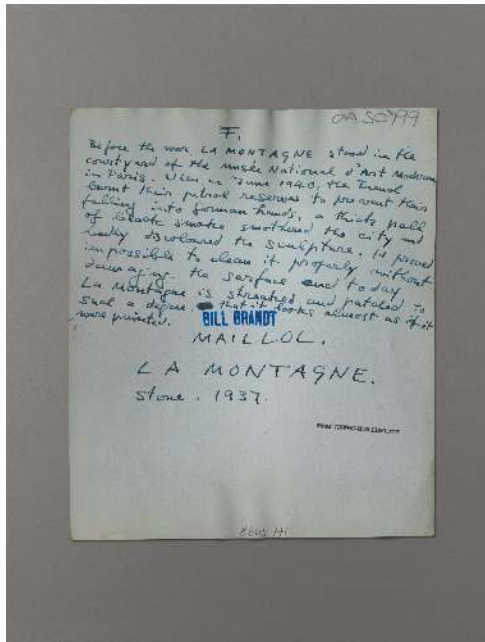 OAS0999
F.
Before the war, LA MONTAGNE stood in the
courtyard of the Musée National d'Art Moderne
in Paris. When in June 1940, the French
burnt their petrol reserves to prevent their
falling into German hands, a thick pall
of black smoke smothered the city and
badly discoloured the sculpture. It proved
impossible to clean it properly without
damaging the surface and today
La Montagne is streaked and patched to
such a degree, that it looks almost as if it
were painted.
BILL BRANDT
MAILLOL.
LA MONTAGNE.
Stone. 1937.